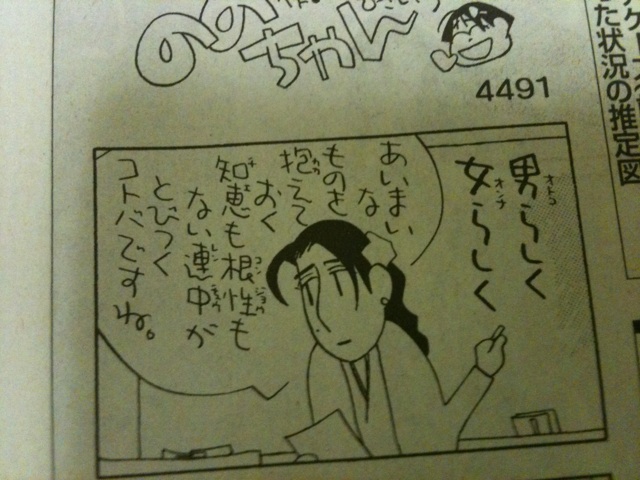 ののちゃん
4491
た状況の推定図
男らしく
女らしく
あいまい
な
ものを
抱えて
おく
知恵も根性も
ない連中が
とびつく
コトバですね。